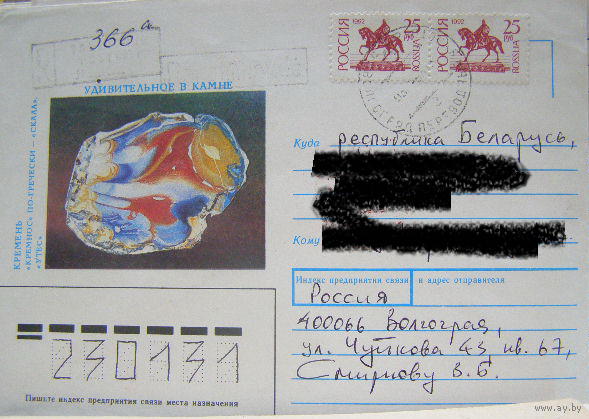 366
УДИВИТЕЛЬНОЕ В КАМНЕ
КРЕМЕНЬ
"КРЕМНОС" ПО-ГРЕЧЕСКИ — "СКАЛА",
"УТЕС"
1992 25 РУБ РОССИЯ ROSSIJA
1992 25 РУБ РОССИЯ ROSSIJA
Куда республика Беларусь,
Кому
Индекс предприятия связи и адрес отправителя
Россия
400066 Волгоград,
ул. Чуйкова 43, кв. 67,
Смирнову В. Б.
230131
Пишите индекс предприятия связи места назначения
www.ay.by